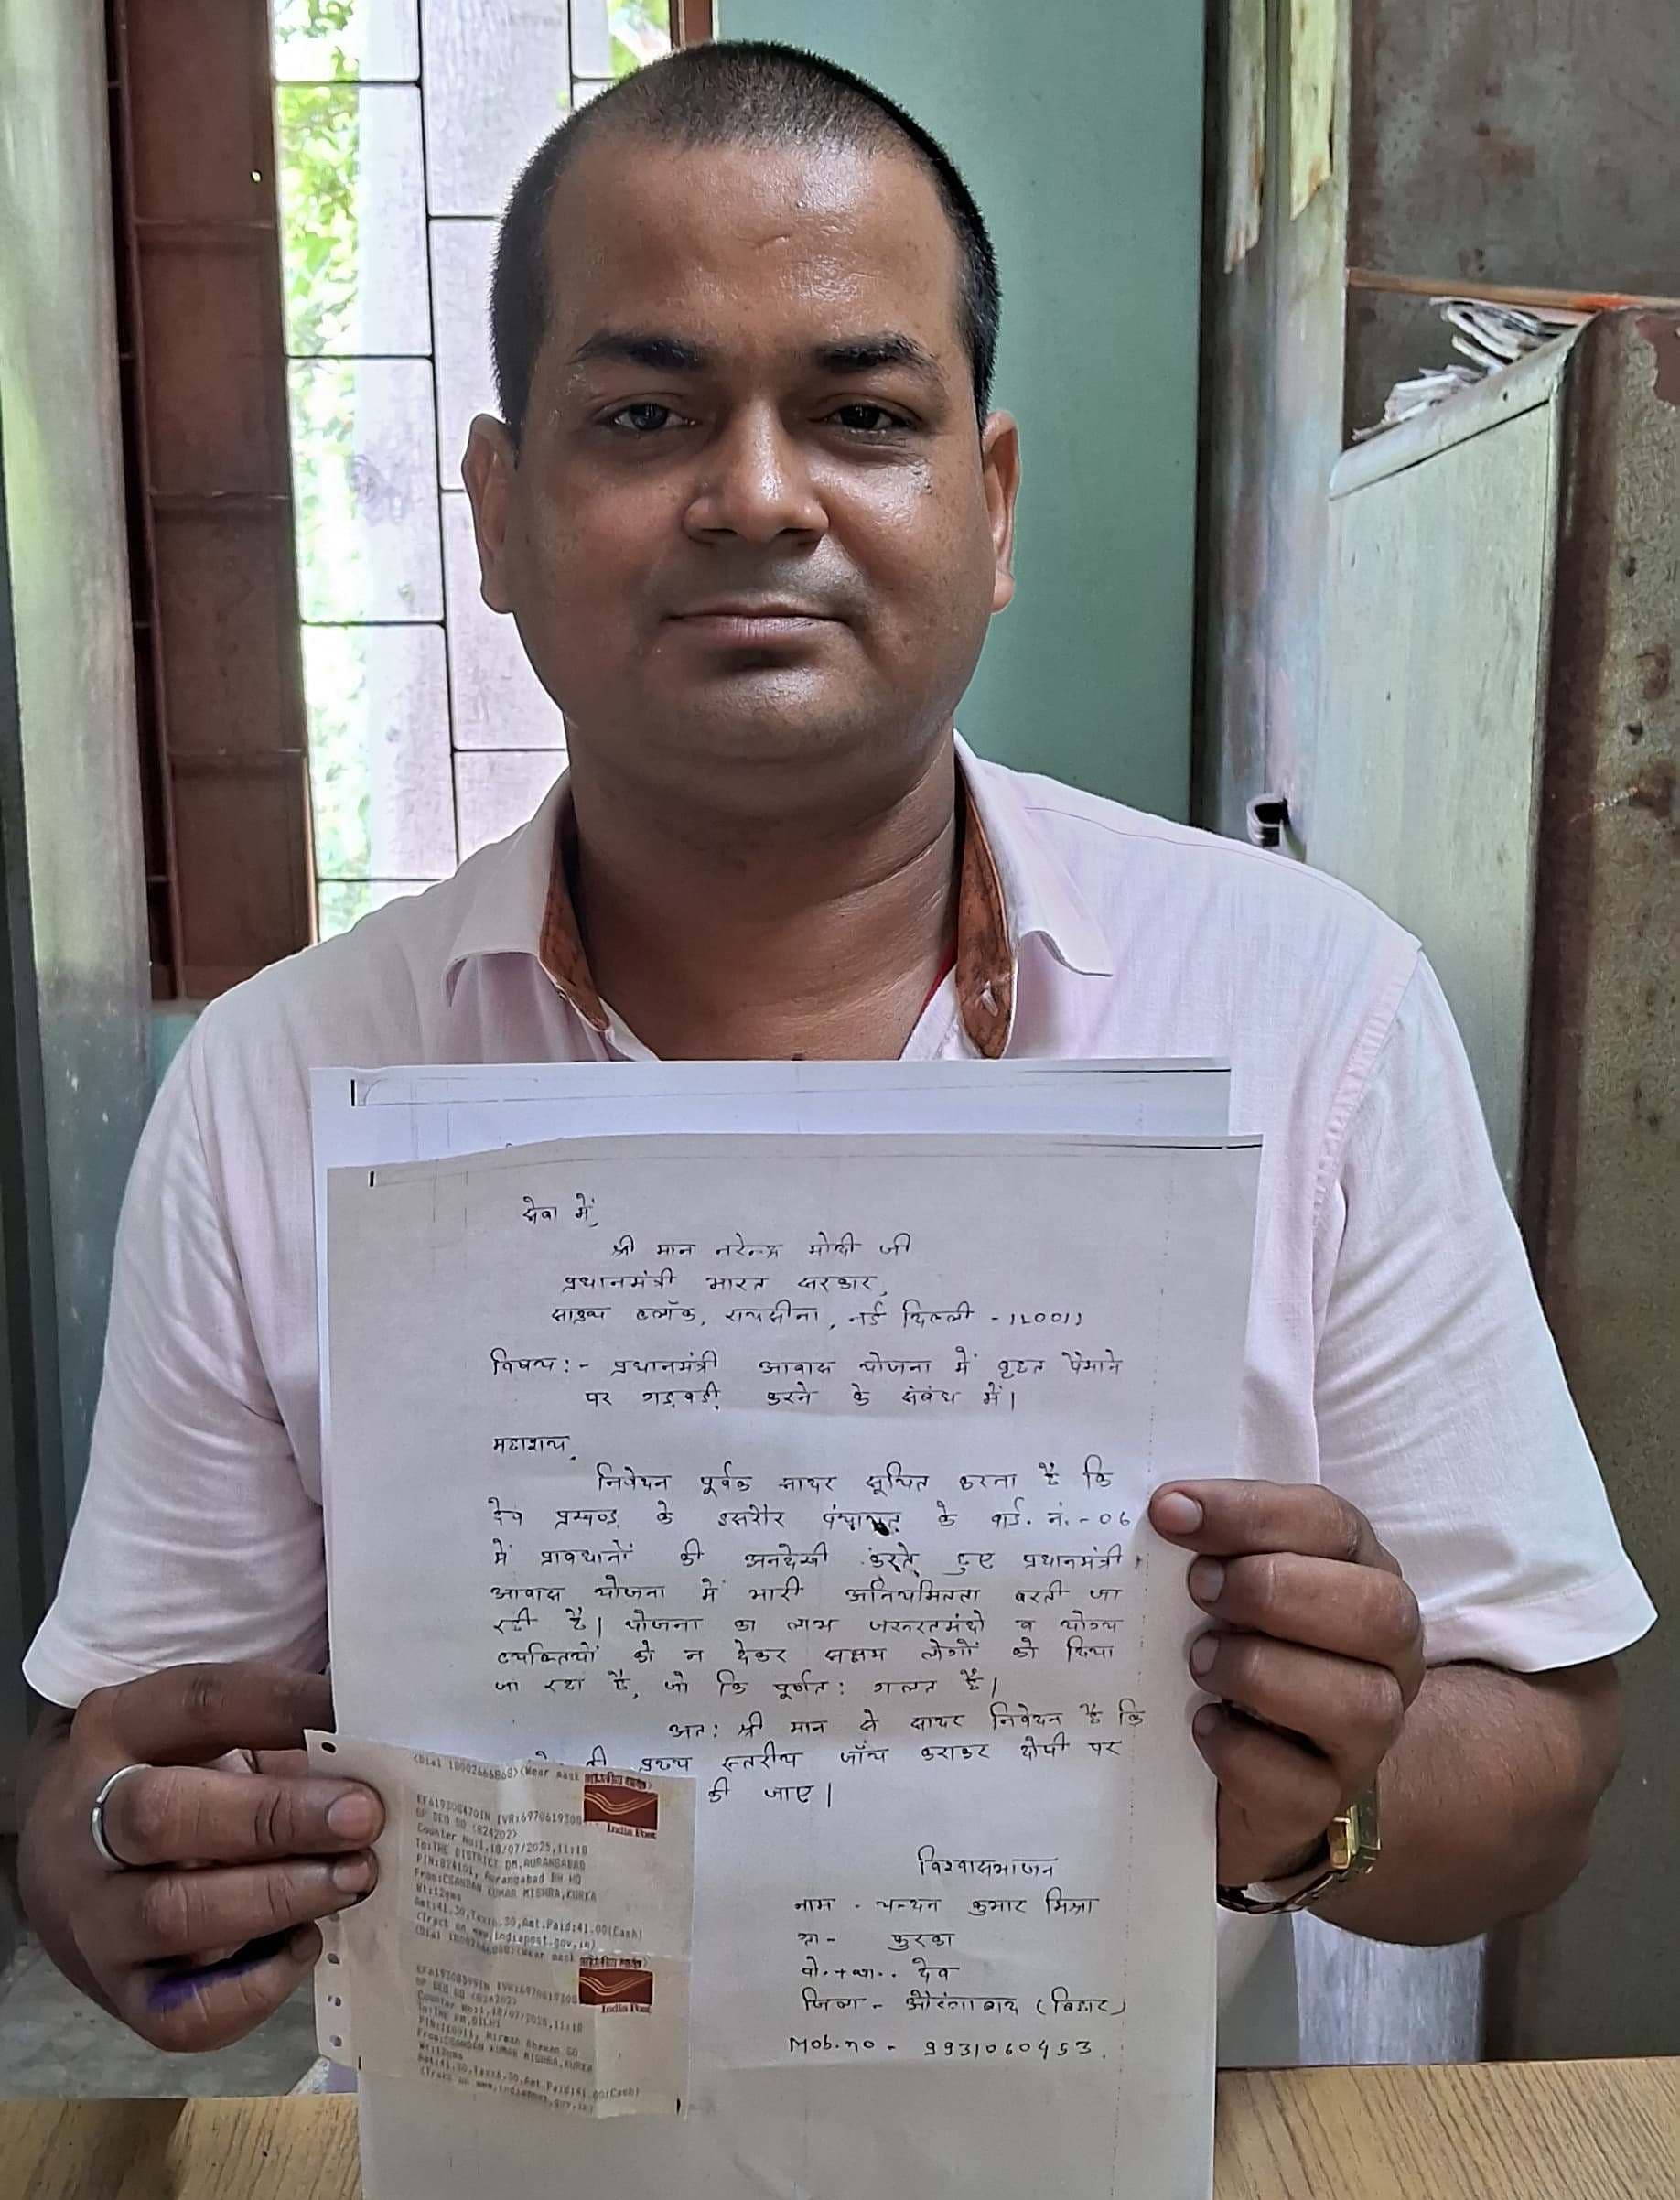 सेवा में,
श्री मान नरेन्द्र मोदी जी
प्रधानमंत्री भारत सरकार,
साउथ ब्लॉक, रायसीना, नई दिल्ली - 110011
विषय :- प्रधानमंत्री आवास योजना में वृहत पैमाने
पर गड़बड़ी करने के संबंध में।
महाशय,
निवेदन पूर्वक सादर सूचित करना है कि
देव प्रखण्ड के इसरौर पंचायत के वार्ड. नं. - 06
में प्रावधानों की अनदेखी करते हुए प्रधानमंत्री
आवास योजना में भारी अनियमितता बरती जा
रही है। योजना का लाभ जरूरतमंदो व योग्य
व्यक्तियों को न देकर सक्षम लोगों को दिया
जा रहा है, जो कि पूर्णत: गलत है।
अत: श्री मान से सादर निवेदन है कि
स्तरीय जाँच कराकर दोषी पर
की जाए।
विश्वासभाजन
नाम - चन्दन कुमार मिश्रा
ग्रा - कुरका
पो.+था.. देव
जिला - औरंगाबाद (बिहार)
Mob.no - 9931060453.
(Dial 18002666868)(Wear mask
EF619308470IN IVR:6970619308
SP DEO SO (824202)
Counter No:1,18/07/2025,11:18
To:THE DISTRICT DM,AURANGABAD
PIN:824101, Aurangabad BH HO
From:CSANDAN KUMAR MISHRA,KURKA
Wt:12gms
Amt:41.30,Tax:6.30,Amt.Paid:41.00(Cash)
(Track on www.indiapost.gov.in)
(Dial 18002666868)(Wear mask
India Post
SP DEO SO (824202)
Counter No:1,18/07/2025,11:18
To:THE PM,DILHI
PIN:110011, Nirman Bhawan SO
From:CSANDAN KUMAR MISHRA,KURKA
Wt:12gms
Amt:41.30,Tax:6.30,Amt.Paid:41.00(Cash)
(Track on www.indiapost.gov.in)
India Post